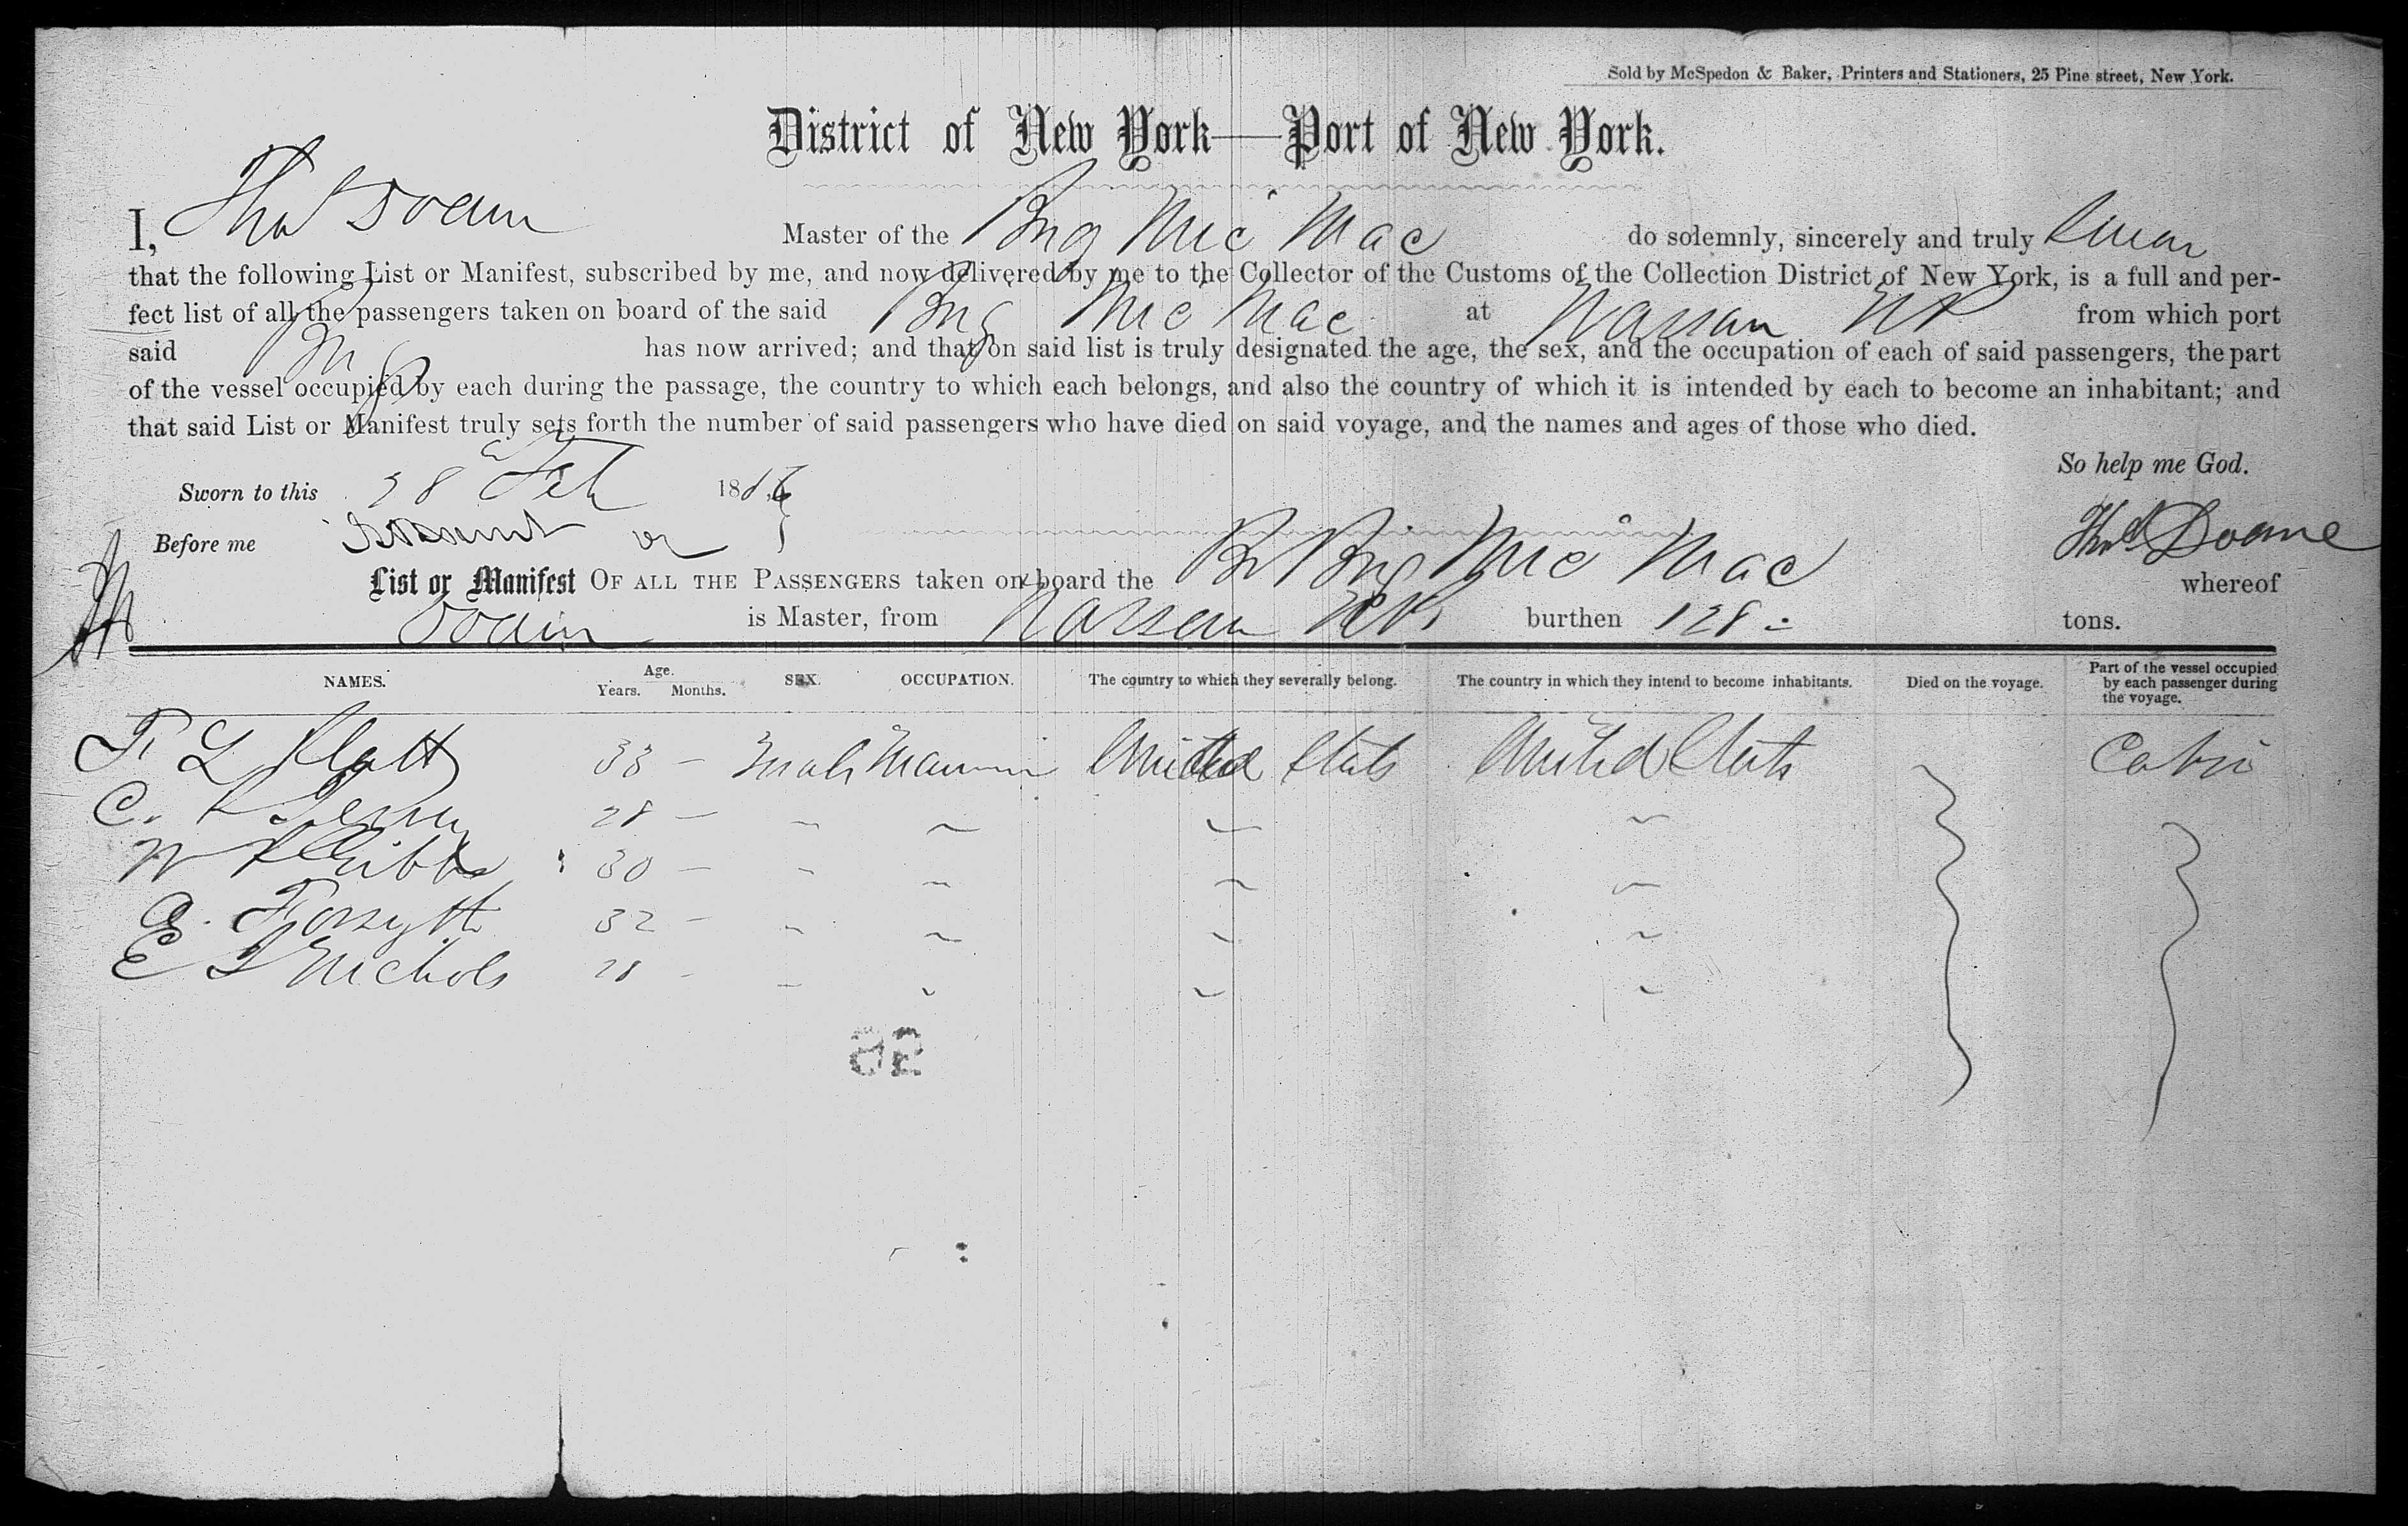 Sold by McSpedon & Baker, Printers and Stationers, 25 Pine street, New York.
District of New York—Port of New York.
I, Thos Doane Master of the Brig Mic Mac do solemnly, sincerely and truly swear
that the following List or Manifest, subscribed by me, and now delivered by me to the Collector of the Customs of the Collection District of New York, is a full and per-
fect list of all the passengers taken on board of the said Brig Mic Mac at Nassau NP from which port
said Brig has now arrived; and that on said list is truly designated the age, the sex, and the occupation of each of said passengers, the part
of the vessel occupied by each during the passage, the country to which each belongs, and also the country of which it is intended by each to become an inhabitant; and
that said List or Manifest truly sets forth the number of said passengers who have died on said voyage, and the names and ages of those who died.
So help me God.
Sworn to this 28 Feb 185
Before me Thos Doane
List or Manifest OF ALL THE PASSENGERS taken on board the Br Brig Mic Mac whereof
Doane is Master, from Nassau NP burthen 128 tons.
NAMES. Age. Years. Months. SEX. OCCUPATION. The country to which they severally belong. The country in which they intend to become inhabitants. Died on the voyage. Part of the vessel occupied by each passenger during the voyage.
L Platt 33 – Male Mariner United States United States Cabin
C. 28 –
W Gibbs 30 –
A. Forsyth 32 –
E Nichols 28 -